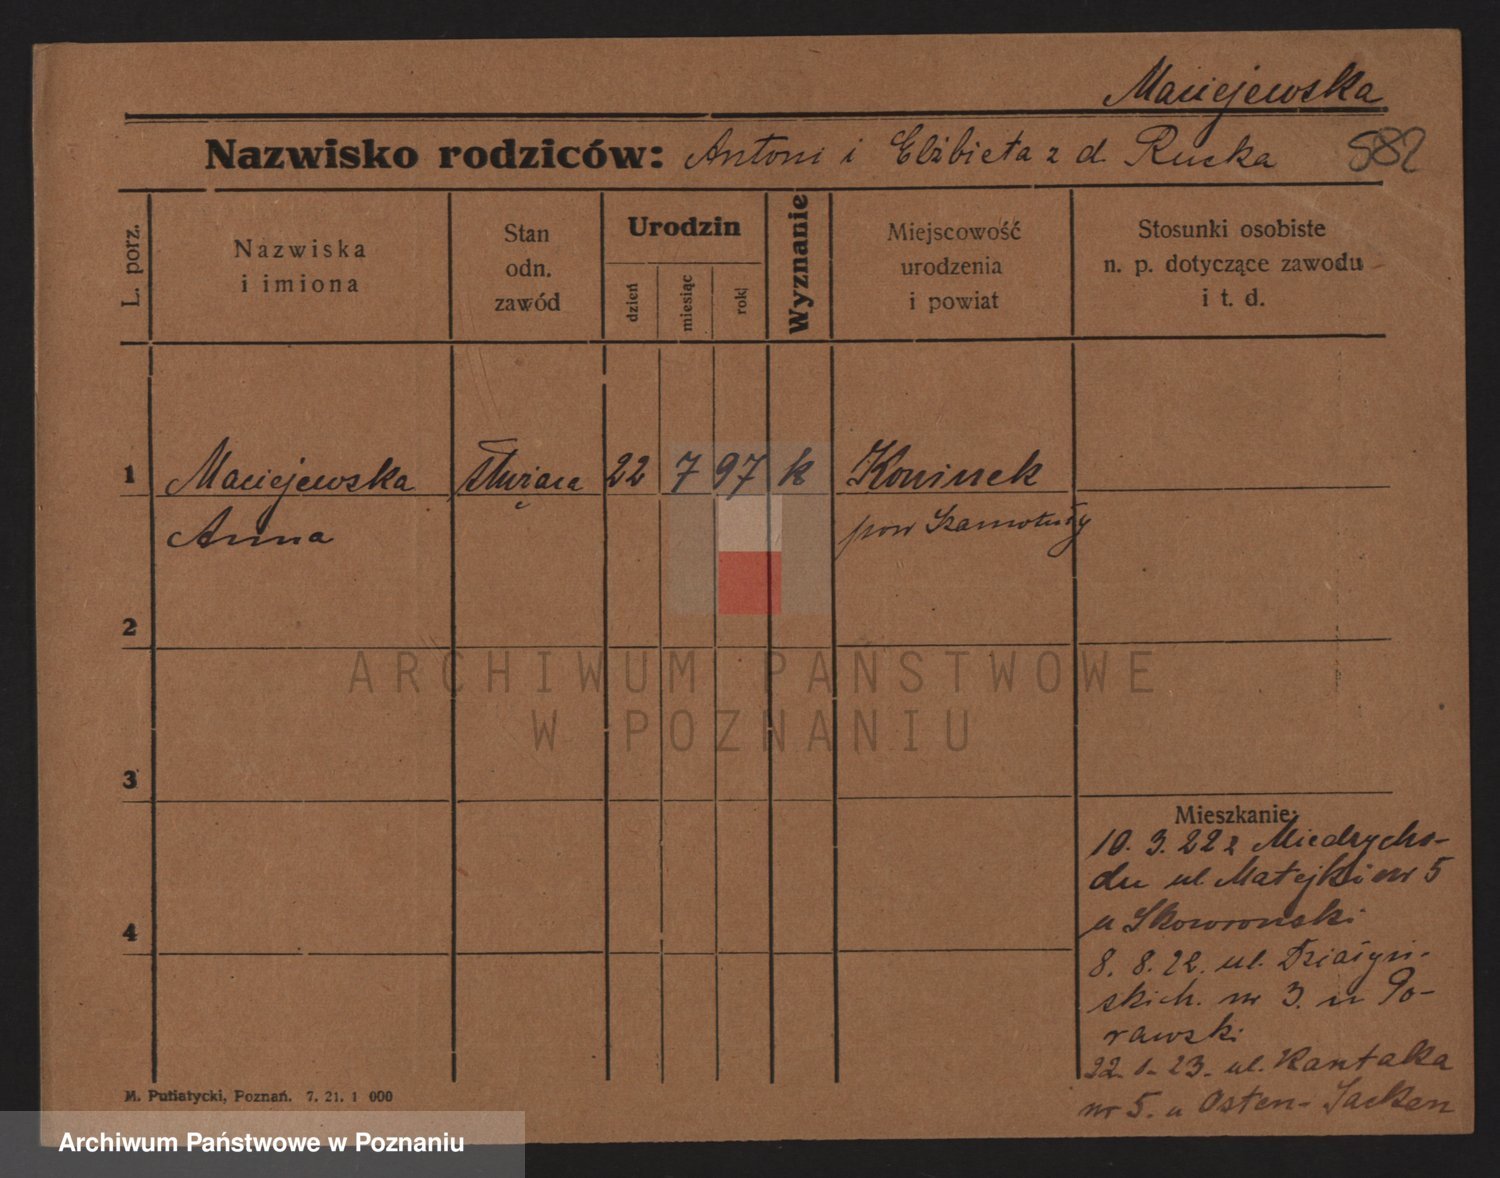 Maciejewska
Nazwisko rodziców: Antoni i Elżbieta z d. Rucka
582
L. porz.
Nazwiska
i imiona
Stan
odn.
zawód
Urodzin
dzień
miesiąc
rok
Wyznanie
Miejscowość
urodzenia
i powiat
Stosunki osobiste
n. p. dotyczące zawodu
i t. d.
1 Maciejewska służąca 22 7 97 k Koninek
Anna pow Szamotuły
2
ARCHIWUM PAŃSTWOWE
W POZNANIU
3
Mieszkanie:
10. 3. 22 z Miedzycho-
du ul. Matejki nr 5
u Skowronski
4
8. 8. 22. ul. Działyń-
skich. nr 3. u Po-
rawski
22. 1. 23. ul. Kantaka
nr 5. u Osten-Sacken
M. Putiatycki, Poznań. 7. 21. 1 000
Archiwum Państwowe w Poznaniu